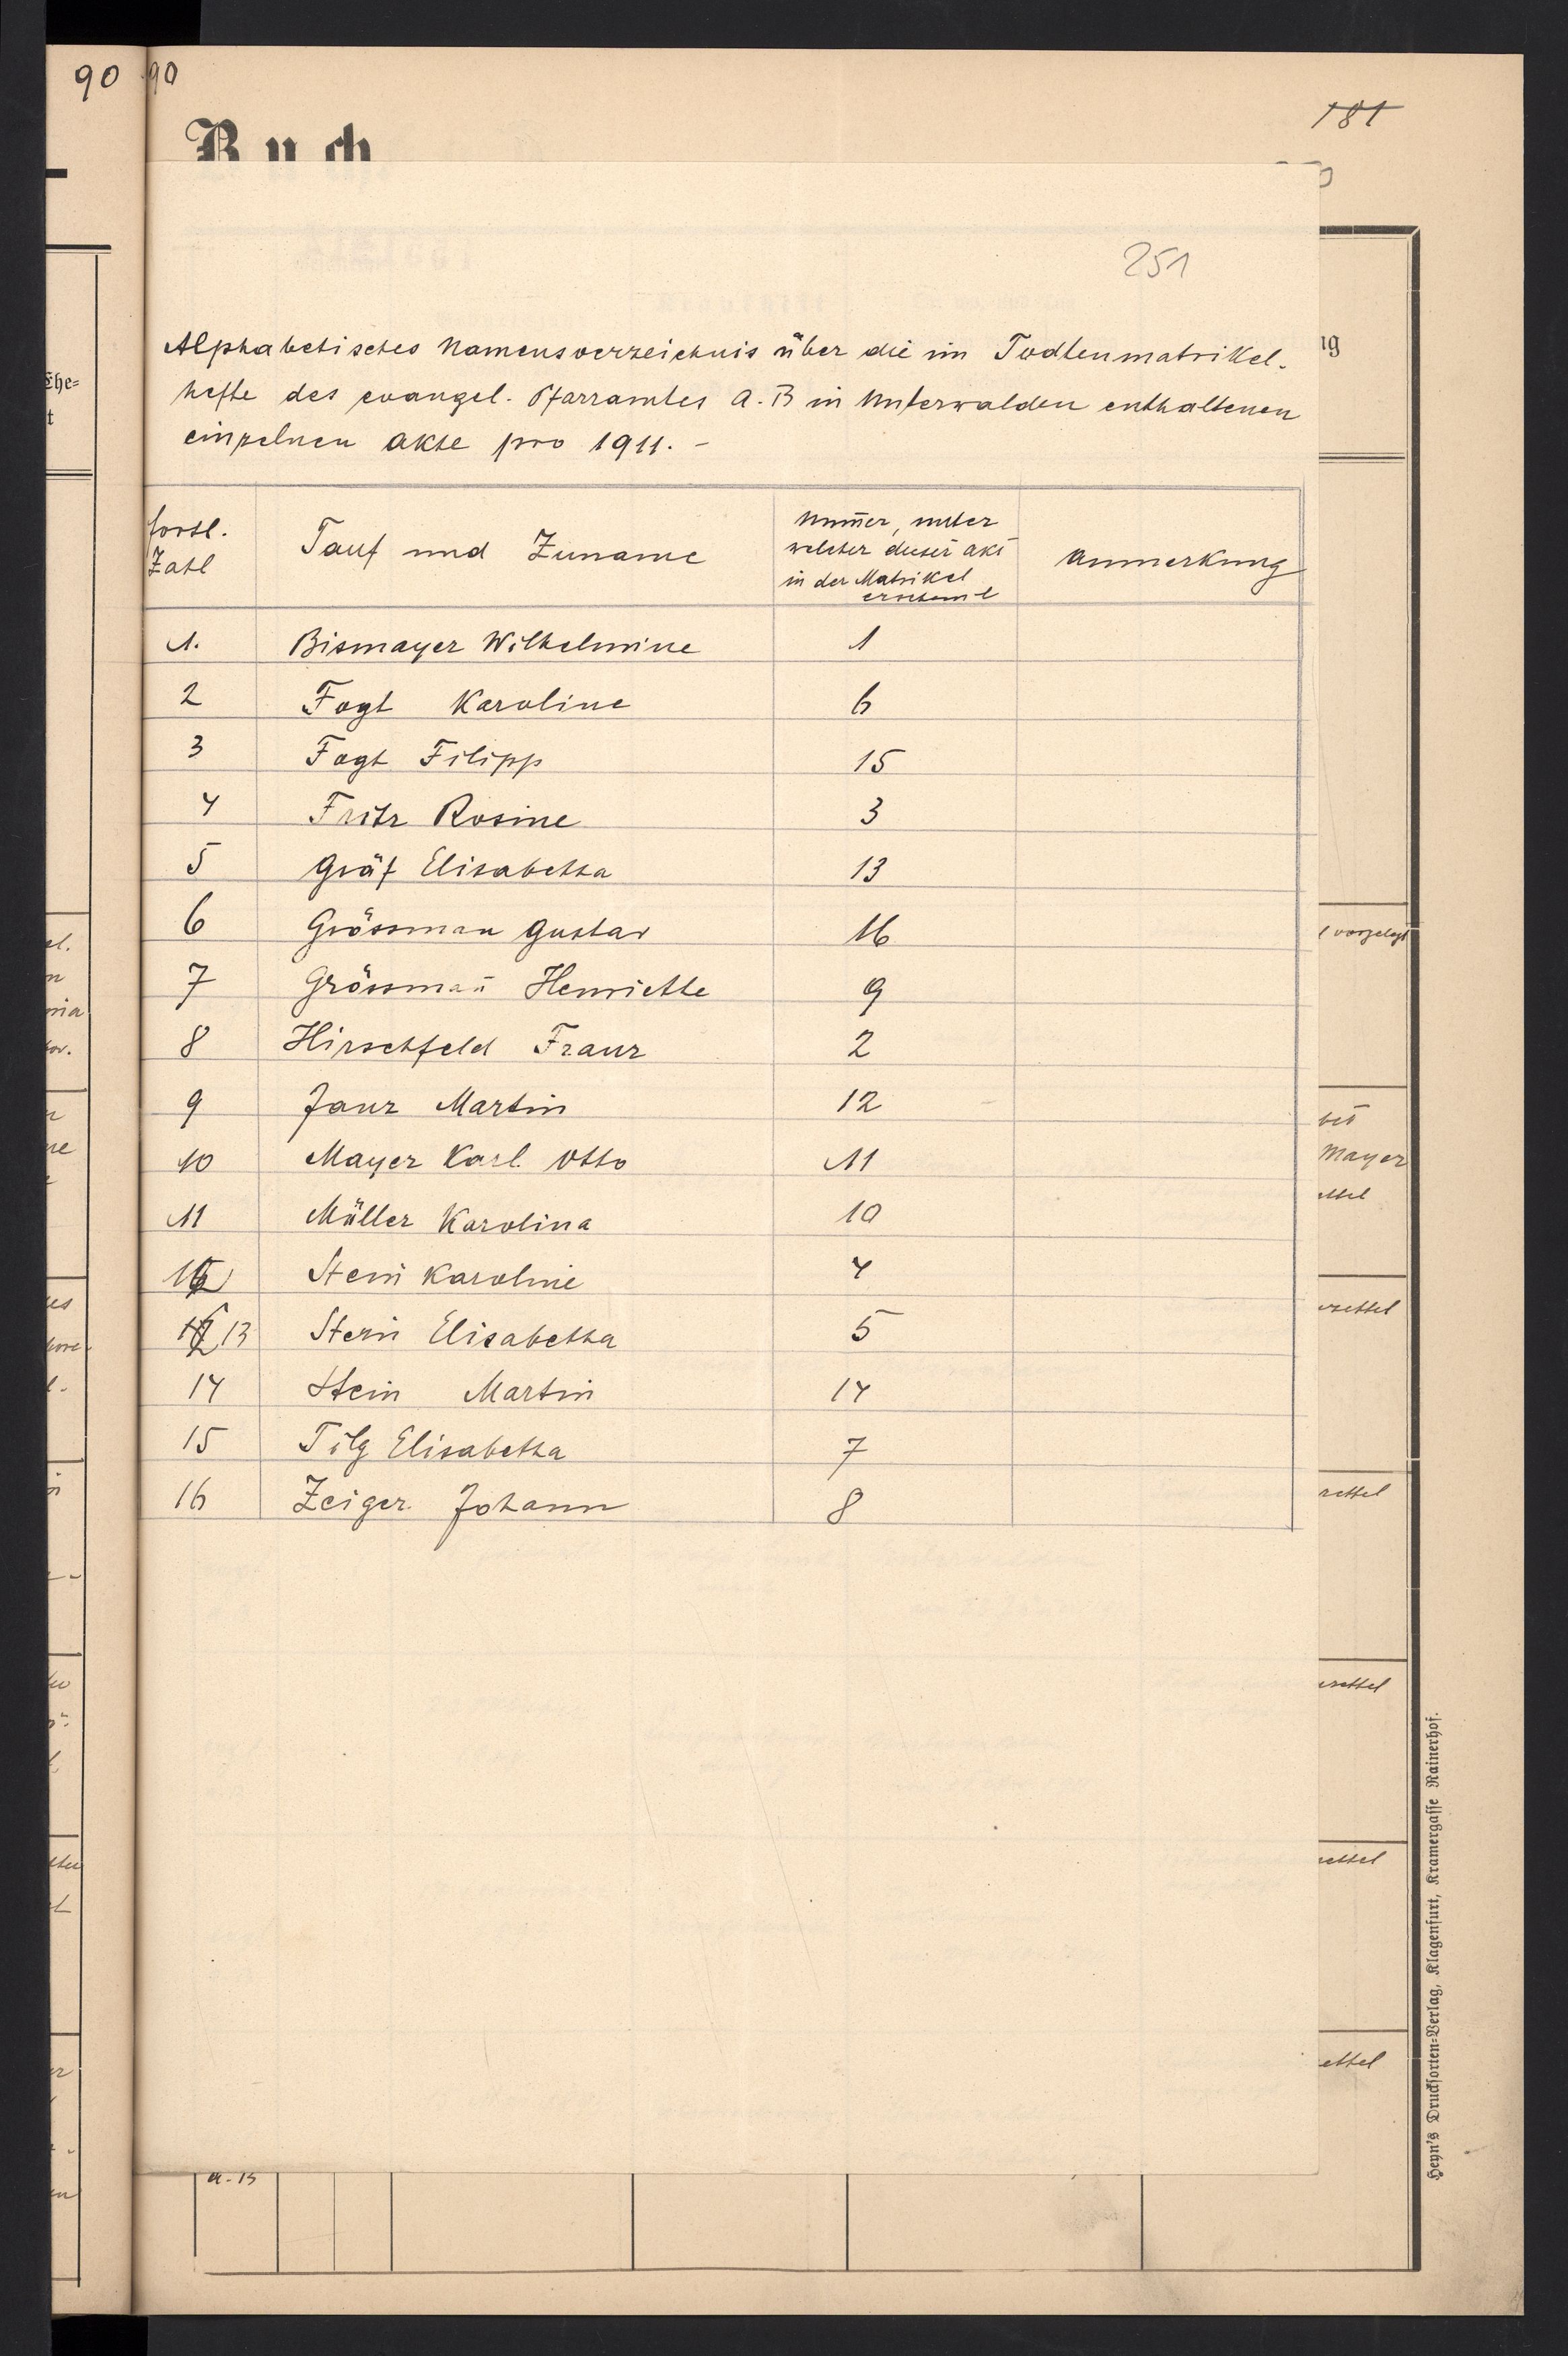 90 90
181
Buch.
251
Alphabetisches Namensverzeichnis über die im Todtenmatrikel-
hefte des evangel. Pfarramtes A. B in Unterwalden enthaltenen
einzelnen Akte pro 1911. -
fortl. Zahl | Tauf und Zuname | Num̄er, unter welcher dieser Akt in der Matrikel erscheint | Anmerkung
1. Bismayer Wilhelmine 1
2 Fogt Karoline 6
3 Fogt Filipp 15
4 Fritz Rosine 3
5 Gräf Elisabetha 13
6 Grössman Gustav 16
7 Grössman̄ Henriette 9
8 Hirschfeld Franz 2
9 Janz Martin 12
10 Mayer Karl Otto 11
11 Müller Karolina 10
12 Stein Karoline 4
13 Stein Elisabetha 5
14 Stein Martin 14
15 Tilg Elisabetha 7
16 Zeiger Johann 8
Ehe=
t
ng
vorgelegt
Mayer
Heyn's Drucksorten=Verlag, Klagenfurt, Kramergasse Rainerhof.